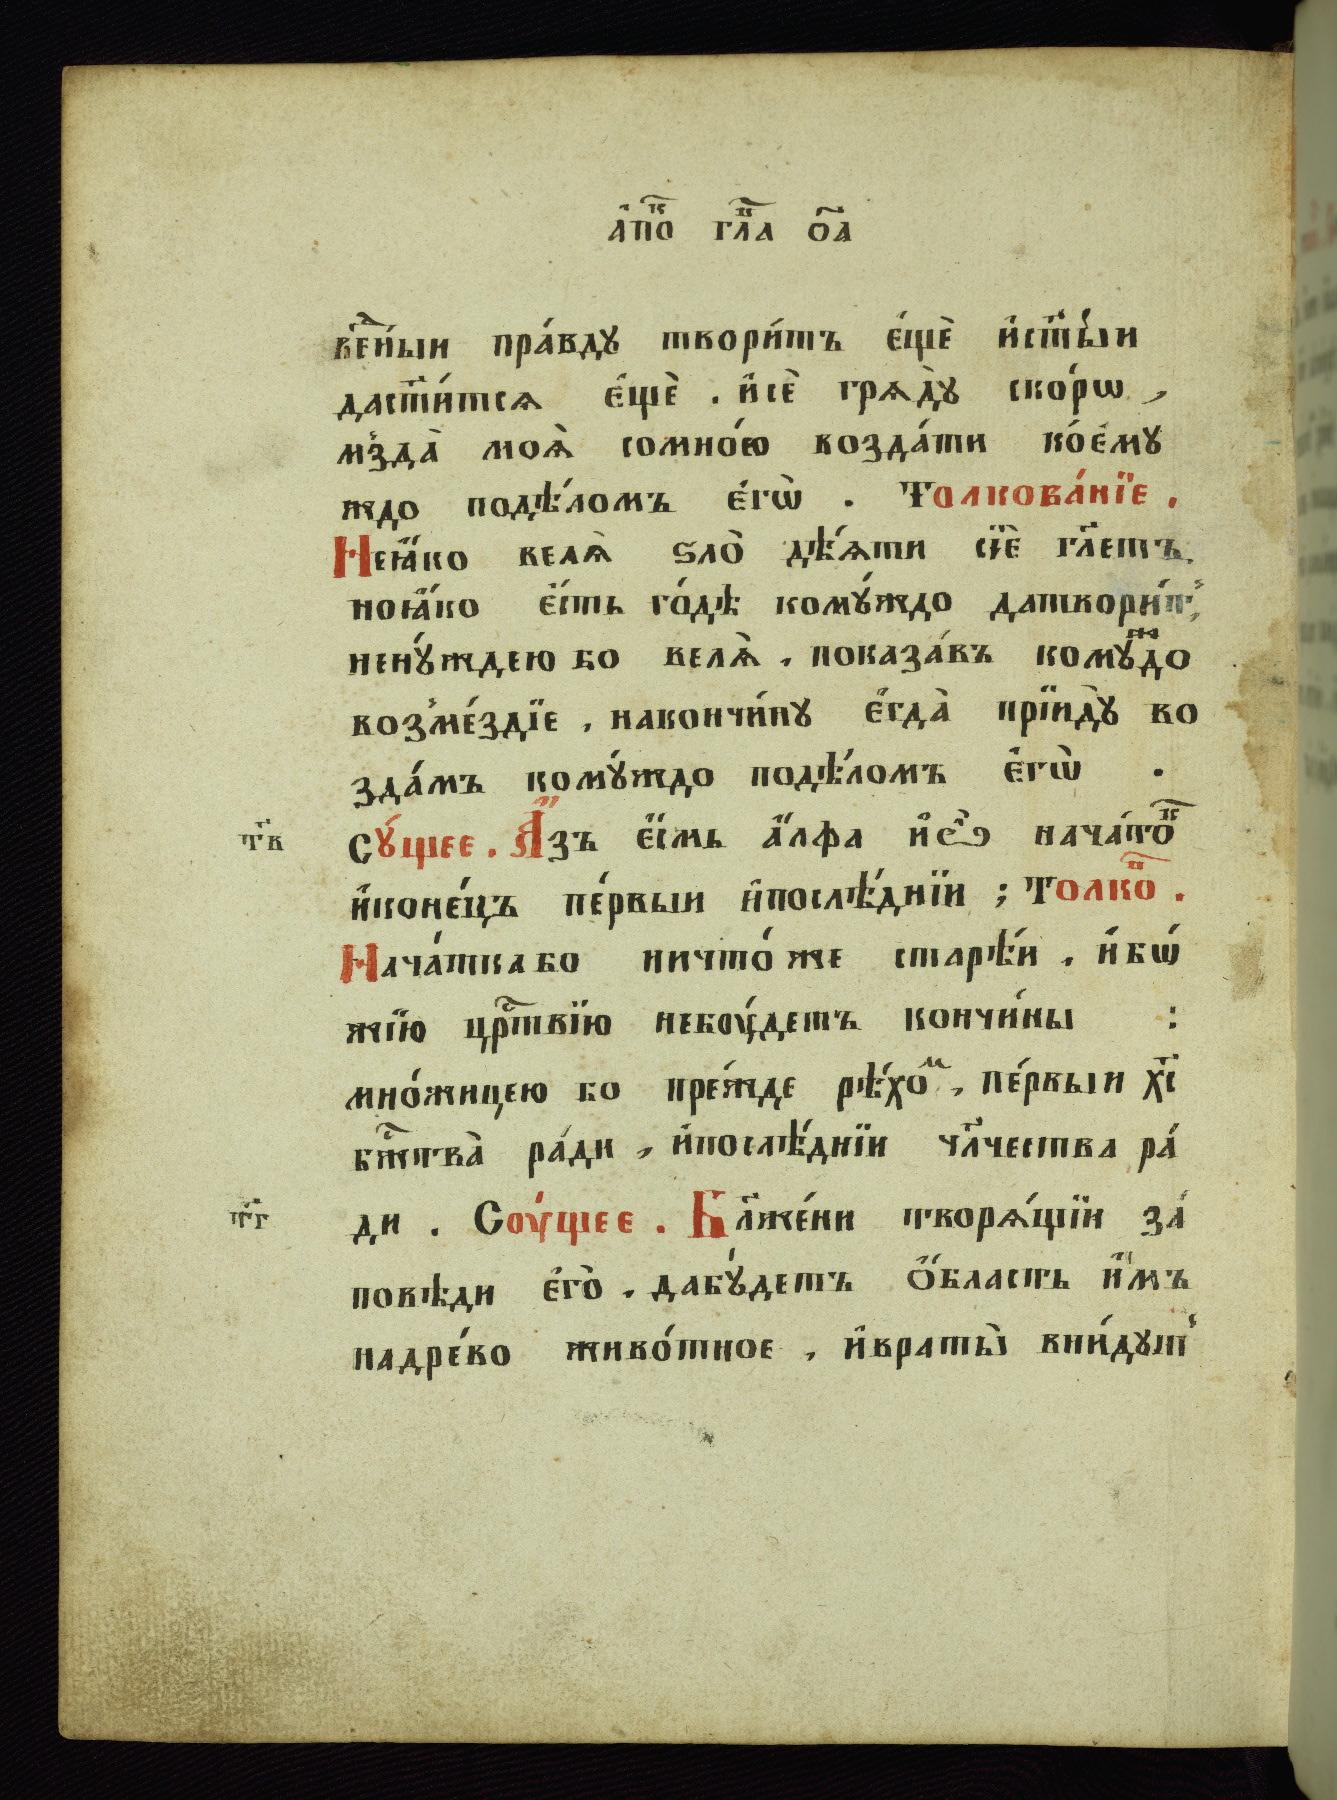 а҆пⷦ҇о гла҃в о҃а
ве́ⷣныи пра́вду твори́тъ є҆щѐ и҆ст҃ы́и
даст҃и́тсѧ є҆щѐ . и҆сѐ грѧдꙋ̀ ско́рѡ ,
мздда̀ моѧ̀ сомно́ю возда́ти ко́ємꙋ
ждо подѣ́ломъ є҆гѡ̀ . Толкова́нїе .
Неꙗ҆́ко велѧ̀ ѕло̀ дѣ́ѧти сїѐ гл҃етъ .
ноꙗ҆́ко є҆́сть го́дѣ комꙋ́ждо даткори́т
ненꙋ́ждею бо велѧ̀ . показа́въ комꙋⷤдо
возме́здїе , накончи́нꙋ є҆гда̀ прїидꙋ̀ во
зда́мъ комꙋ́ждо подѣ́ломъ є҆гѡ̀ .
т҃в Сꙋ́щее . А҆́зъ є҆́смь а҆́лфа и҆ѿ нача́тоⷦ҇
и҆коне́цъ пе́рвыи и҆послѣ́днїи ; Толкоⷡ҇ .
Нача́тка бо ничто́ же старѣ́и . и҆бѡ́
жїю црⷭ҇твїю небоу́детъ кончи́ны :
мно́жицею бо пре́жде рѣ́хоⷨ , пе́рвыи хⷭ҇
бжⷭ҇тва̀ ра́ди , и҆послѣ́днїи чл҃чества ра́
т҃г ди . Соу́щее . Бл҃же́ни творѧ́щїи за́
повѣди є҆го̀ . дабꙋ́детъ ѻ҆́бласть и҆̀мъ
надре́во живо́тное , и҆враты̀ вни́дꙋт